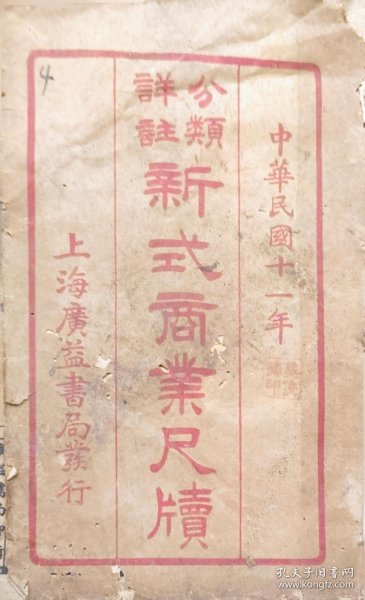 中華民國十一年
分類
詳註
新式商業尺牘
上海廣益書局發行
4
孔夫子旧书网
www.kongfz.com